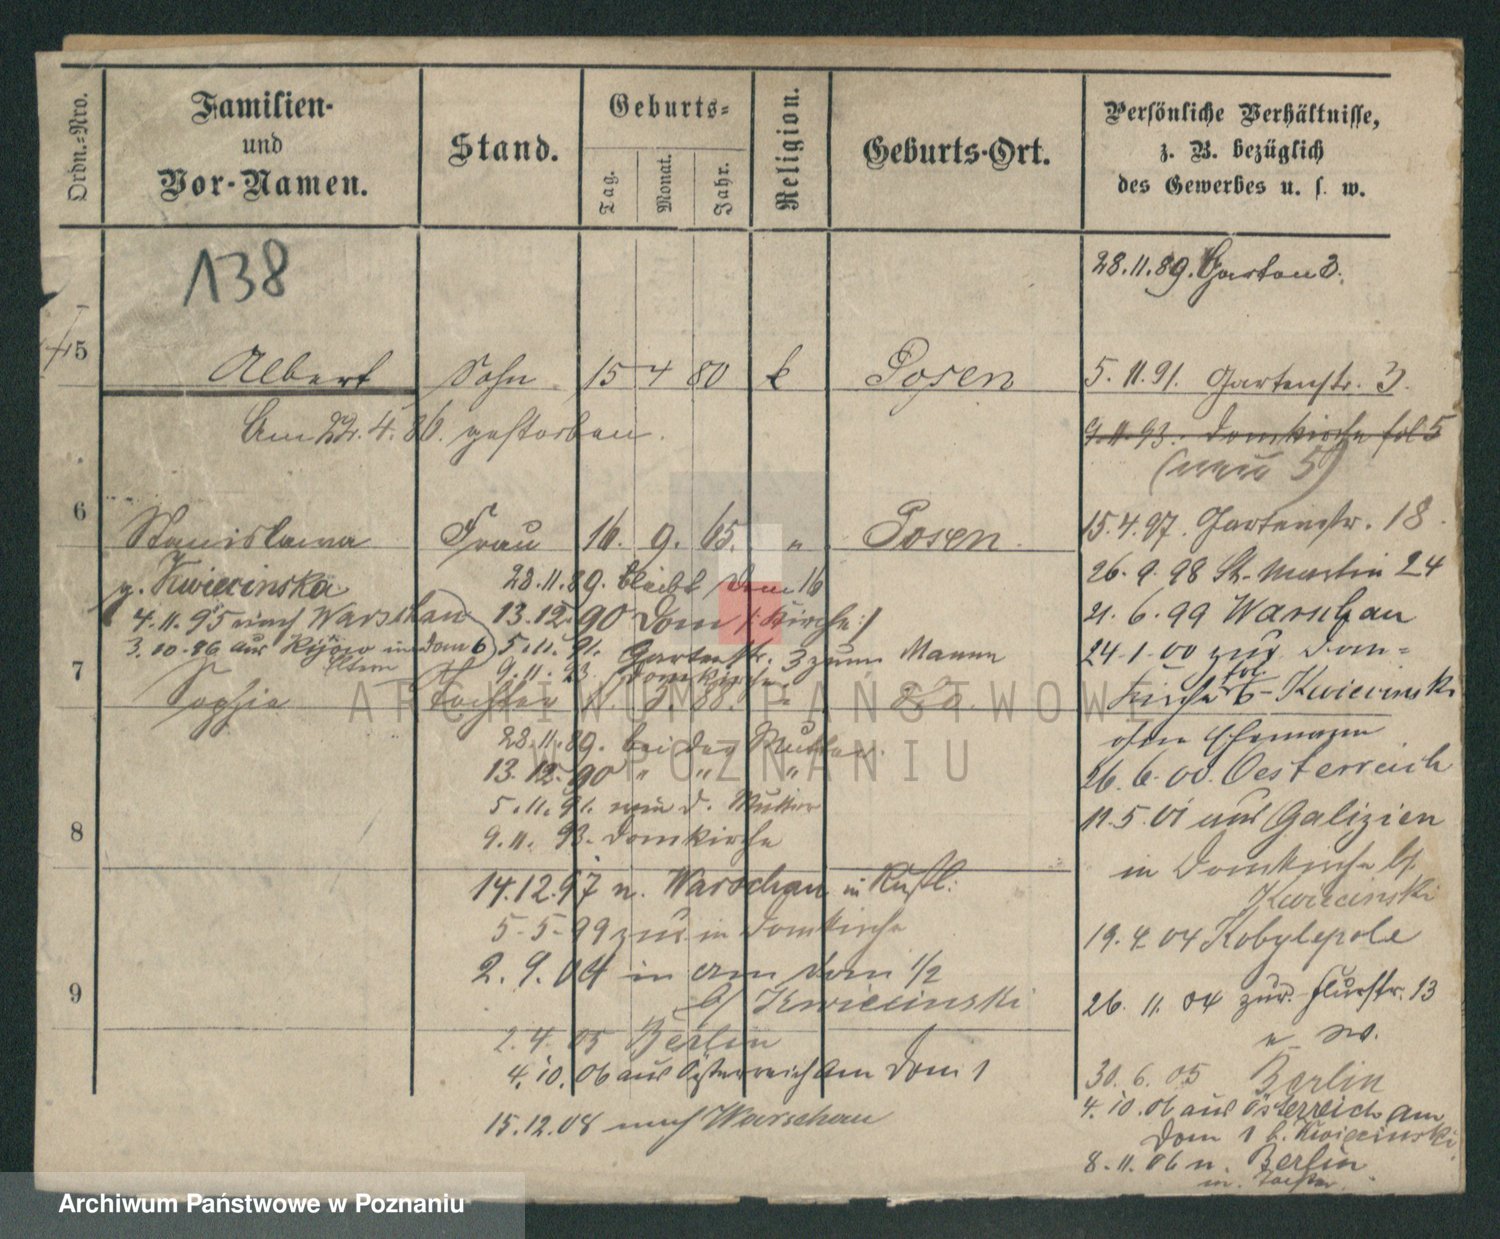 Ordn.-Nro.
Familien-
und
Vor-Namen.
Stand.
Geburts-
Tag.
Monat.
Jahr.
Religion.
Geburts-Ort.
Persönliche Verhältnisse,
z. B. bezüglich
des Gewerbes u. s. w.
138
28.11.89. Garten 3.
5
Albert Sohn 15 4 80 k Posen
5.11.91. Gartenstr. 3.
Am 22. 4. 86. gestorben.
9.11.93. Domkirche fol 5
6
Stanislawa Frau 16. 9. 65. " Posen.
15.4.97. Gartenstr. 18.
g. Kwiecinska
28.11.89. bleibt Dom 16
26.9.98 St. Martin 24
4.11.95 nach Warschau
13.12.90 Dom /:Kirche:/
21.6.99 Warschau
3.10.96 aus Kijow in Dom 6
5.11.91. Gartenstr. 3 zum Manne
24.1.00 zur. Dom-
kirche fol 6 - Kwiecinski
Eltern
9.11.93 Domkirche
7
Sophie Tochter 11. 3. 88. "
ohne Ehemann
28.11.89. bei der Mutter.
13.12.90 " " "
26.6.00. Oesterreich
5.11.91. wie d. Mutter
11.5.01 aus Galizien
8
9.11.93. Domkirche
in Domkirche bei
Kwiecinski
14.12.97 n. Warschau in Rußl:
5-5-99 zur in Domkirche
19.4.04 Kobylepole
2.9.04 in am Dom 1/2
b/ Kwiecinski
9
26.11.04 zur. Flurstr. 13
2.4.05 Berlin
30.6.05 Berlin
4.10.06 aus Österreich Am Dom 1
4.10.06 aus Österreich am
Dom 1 b. Kwiecinski
15.12.08 nach Warschau
8.11.06 n. Berlin
ARCHIWUM PAŃSTWOWE
POZNANIU
Archiwum Państwowe w Poznaniu